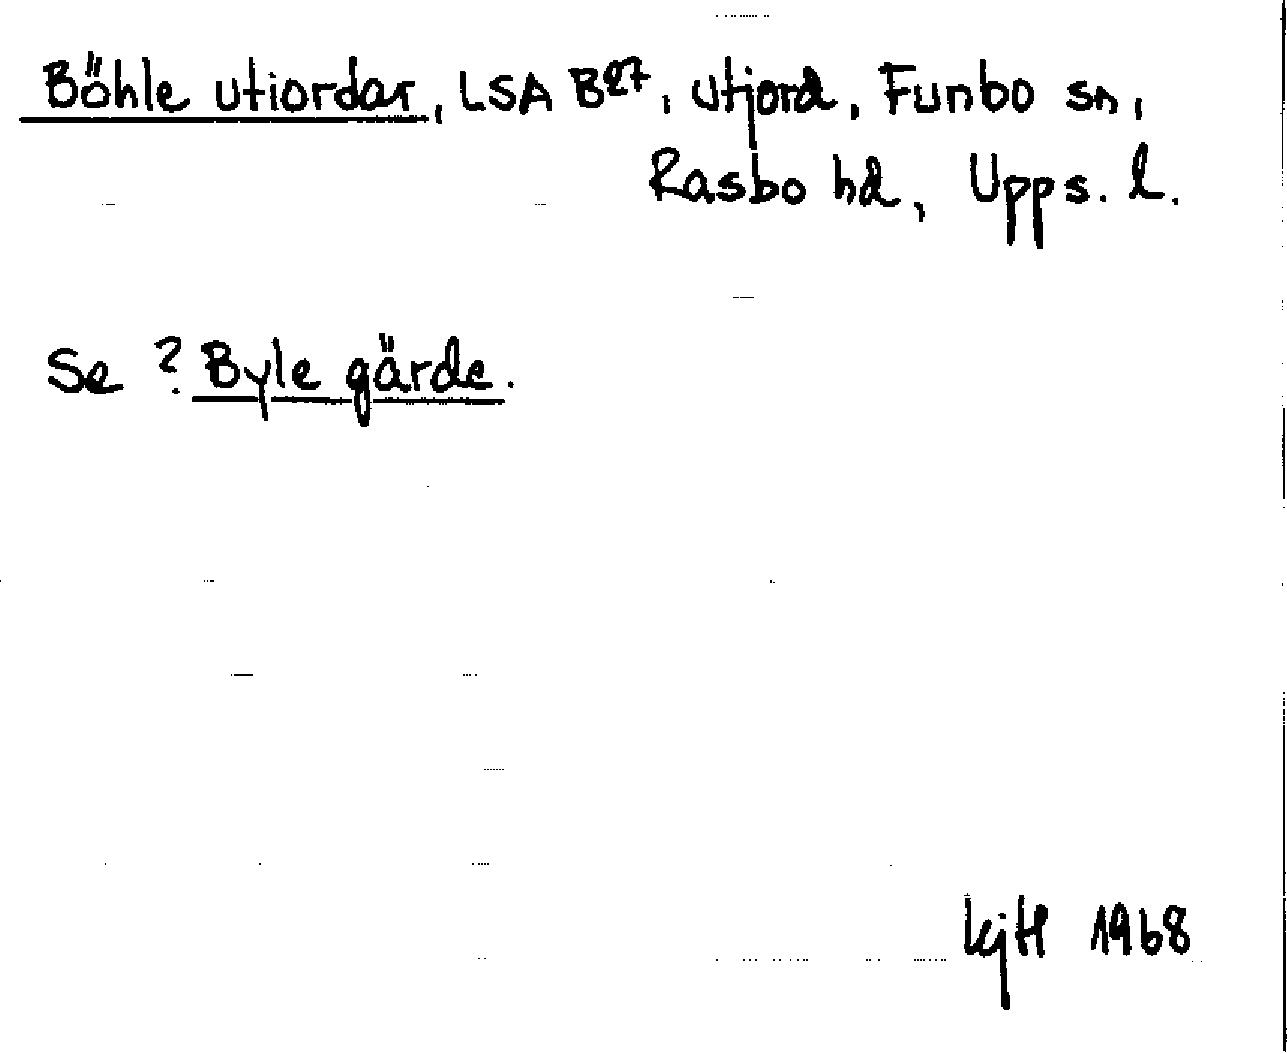 Böhle utiordar, LSA B27, utjord, Funbo sn,
Rasbo hd, Upps. l.
Se ? Byle gärde.
KjH 1968